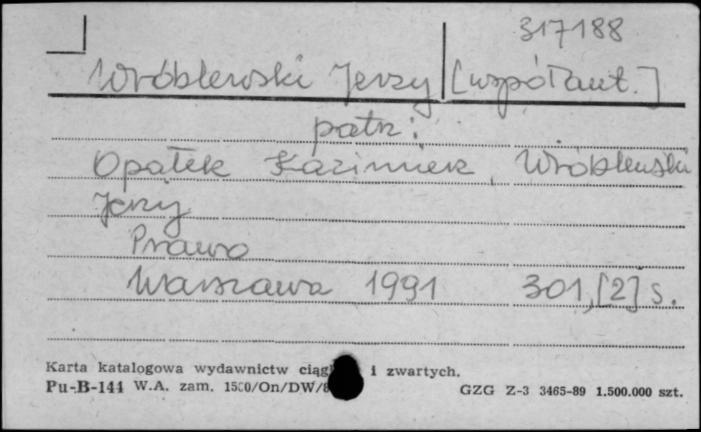 317188
Wróblewski Jerzy [współaut.]
patrz:
Opałek Kazimierz, Wróblewski
Jerzy
Prawo
Warszawa 1991 301,[2] s.
Karta katalogowa wydawnictw i zwartych.
Pu-B-144 W.A. zam. 1500/On/DW/8 GZG Z-3 3465-89 1.500.000 szt.